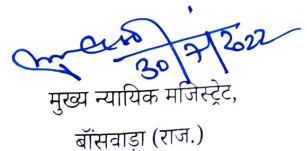 30/7/2022
मुख्य न्यायिक मजिस्ट्रेट,
बॉंसवाड़ा (राज.)